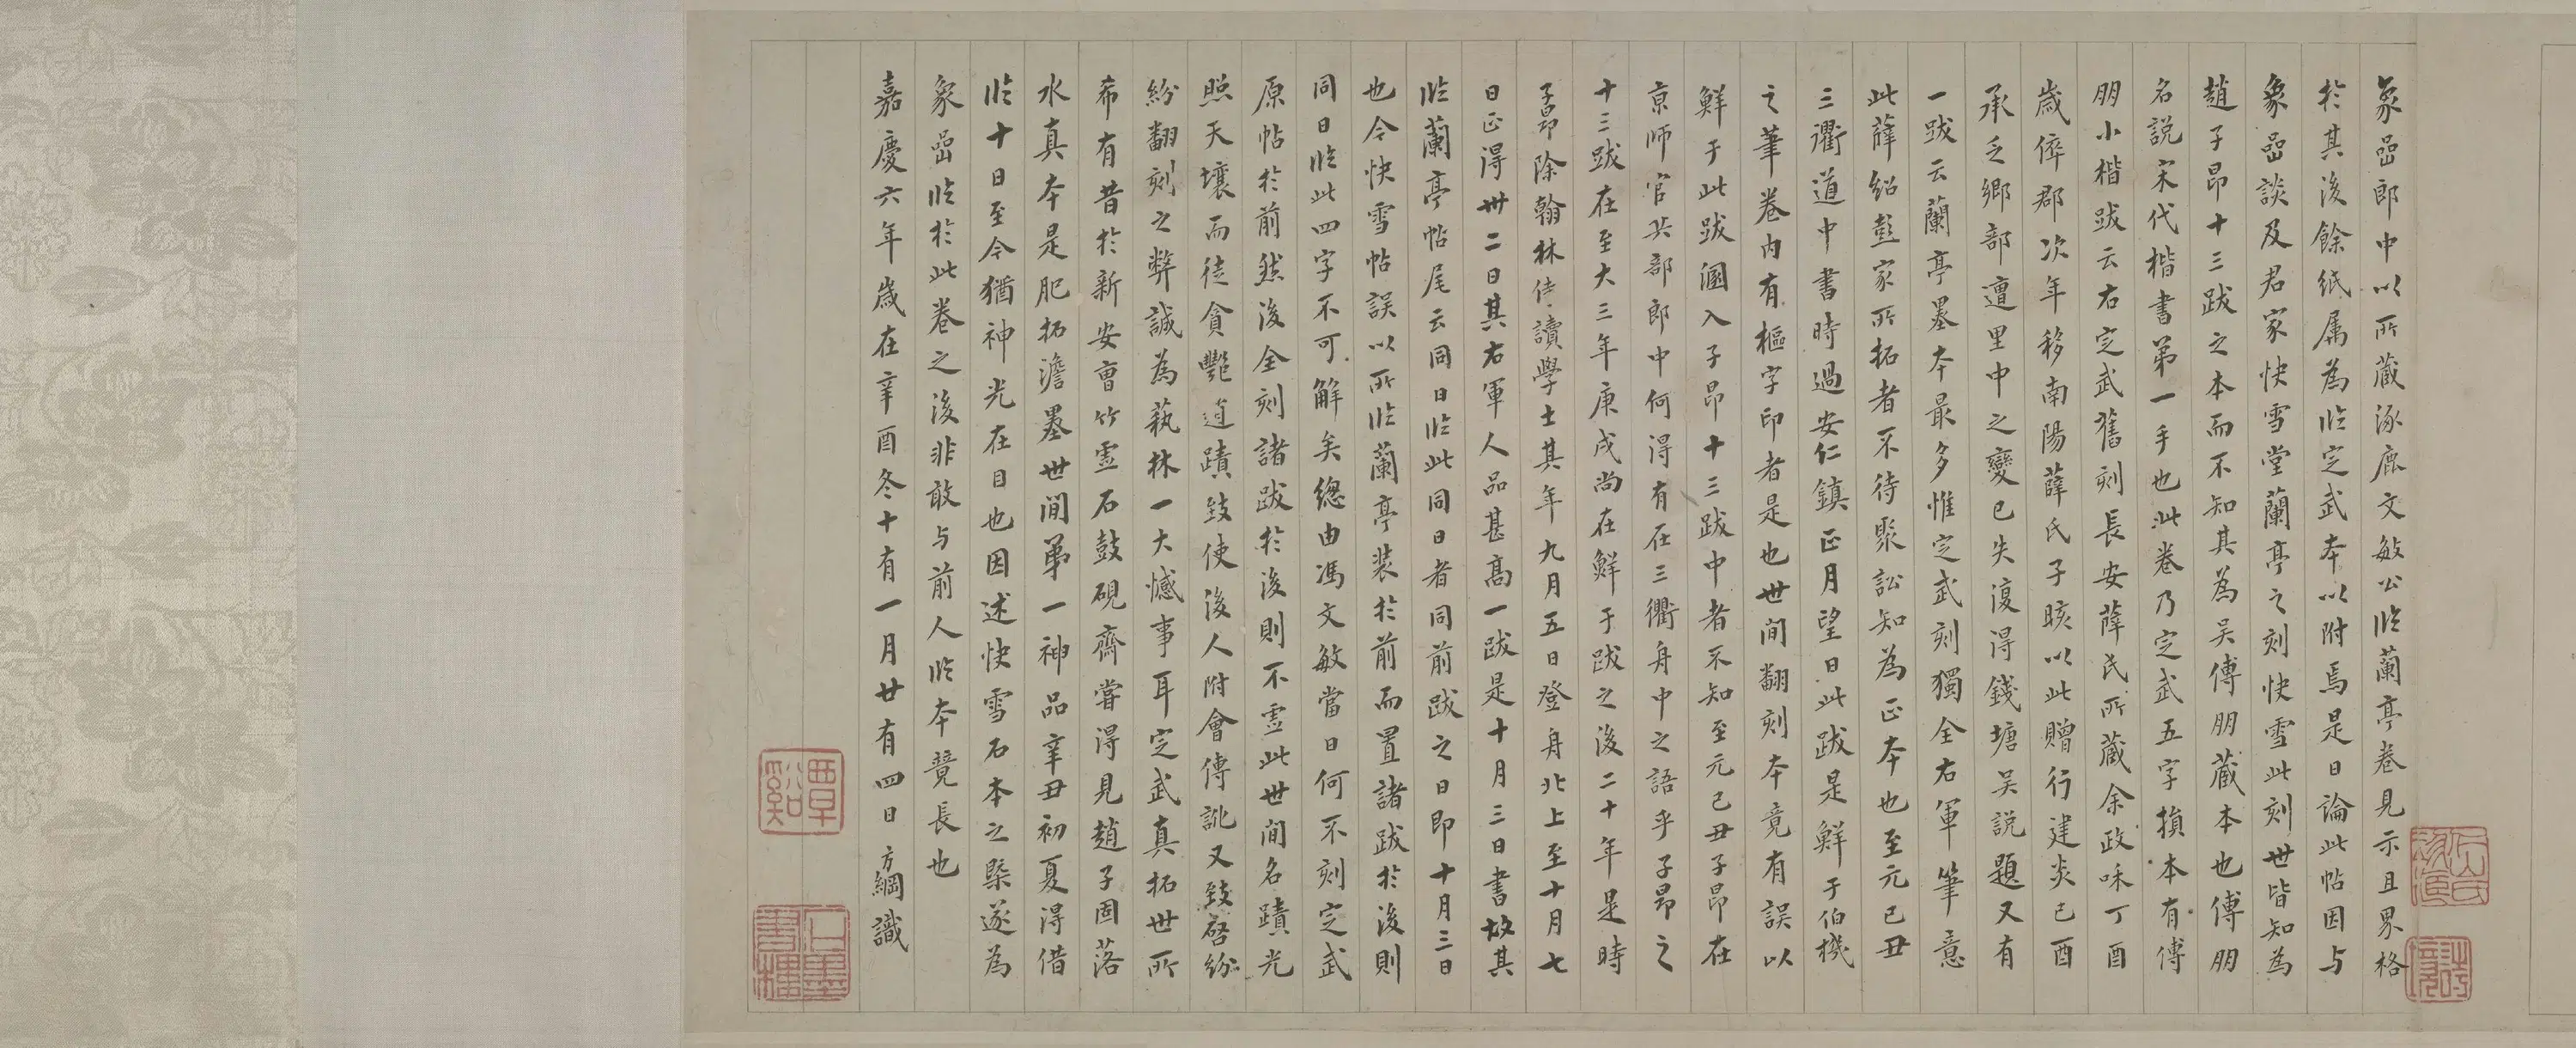 象嵒郎中以所藏涿鹿文敏公臨蘭亭卷見示且界格
於其後餘紙属為臨定武本以附焉是日論此帖因与
象嵒談及君家快雪堂蘭亭之刻快雪此刻世皆知為
趙子昂十三跋之本而不知其為吴傅朋藏本也傅朋
名說宋代楷書第一手也此卷乃定武五字損本有傅
朋小楷跋云右定武舊刻長安薛氏所藏余政和丁酉
歲倅郡次年移南陽薛氏子晐以此贈行建炎己酉
承乏鄉部遭里中之變已失復得錢塘吴説題又有
一跋云蘭亭墨本最多惟定武刻獨全右軍筆意
此薛紹彭家所拓者不待聚訟知為正本也至元己丑
三衢道中書時過安仁鎮正月望日此跋是鮮于伯機
之筆卷内有樞字印者是也世間翻刻本竟有誤以
鮮于此跋溷入子昂十三跋中者不知至元己丑子昂在
京師官兵部郎中何得有在三衢舟中之語乎子昂之
十三跋在至大三年庚戌尚在鮮于跋之後二十年是時
子昂除翰林侍讀學士其年九月五日登舟北上至十月七
日正得卅二日其右軍人品甚高一跋是十月三日書故其
臨蘭亭帖尾云同日臨此同日者同前跋之日即十月三日
也今快雪帖誤以所臨蘭亭裝於前而置諸跋於後則
同日臨此四字不可解矣緫由馮文敏當日何不刻定武
原帖於前然後全刻諸跋於後則不虚此世間名蹟光
照天壤而徒貪艷逌蹟致使後人附會傳訛又致啓紛
紛翻刻之弊誠為蓺林一大憾事耳定武真拓世所
希有昔於新安曺竹虚石鼓硯齋嘗得見趙子固落
水真本是肥拓澹墨世間第一神品辛丑初夏得借
臨十日至今猶神光在目也因述快雪石本之槩遂為
象嵒臨於此卷之後非敢与前人臨本競長也
嘉慶六年歲在辛酉冬十有一月廿有四日方綱識
覃谿